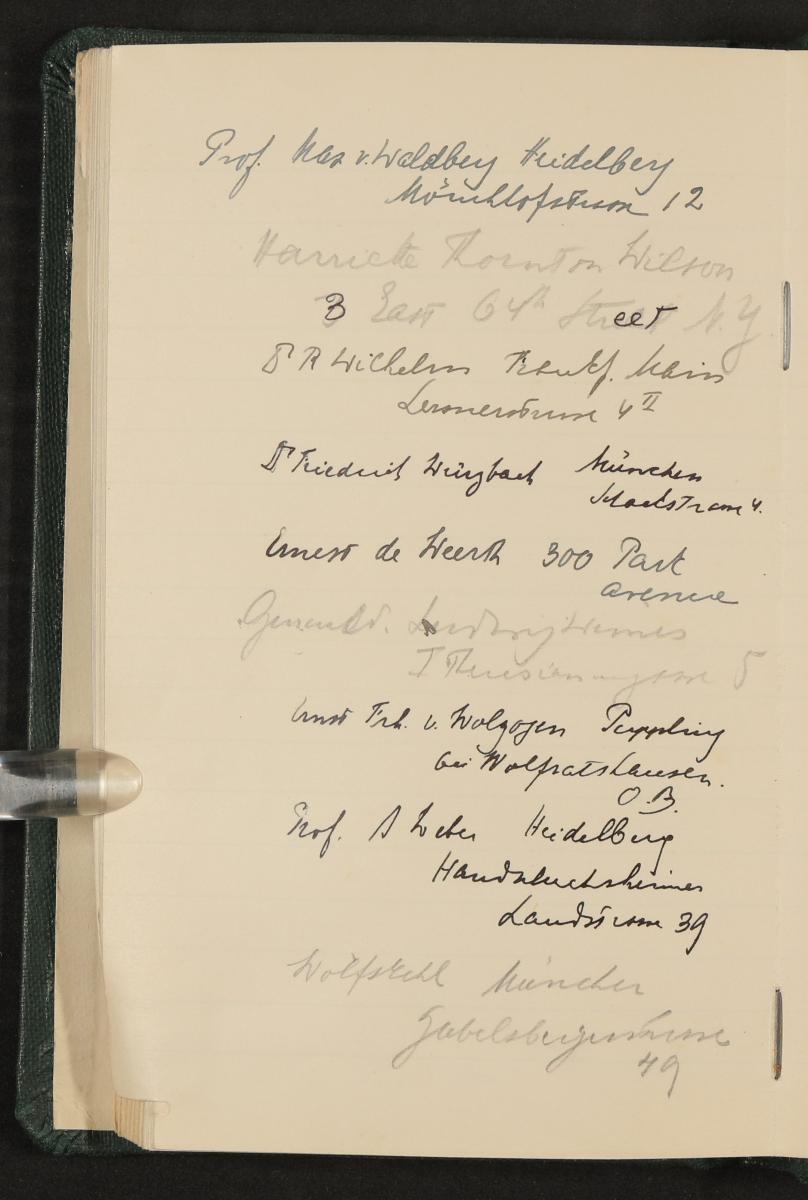 Prof. Max v. Waldberg Heidelberg
Mönchhofstrasse 12
Harriette Thornton Wilson
3 East 64th Street N.Y.
Dr R Wilhelm Frankf. Main
Lersnerstrasse 4 II
Dr Friedrich Würzbach München
4.
Ernest de Weerth 300 Park
Avenue
Ludwig
I Theresianumgasse 5
Ernst Frh. v. Wolzogen Puppling
bei Wolfratshausen.
O.B.
Prof. A Weber Heidelberg
Handschuchsheimer
Landstrasse 39
Wolfskehl München
Gabelsbergerstrasse
49